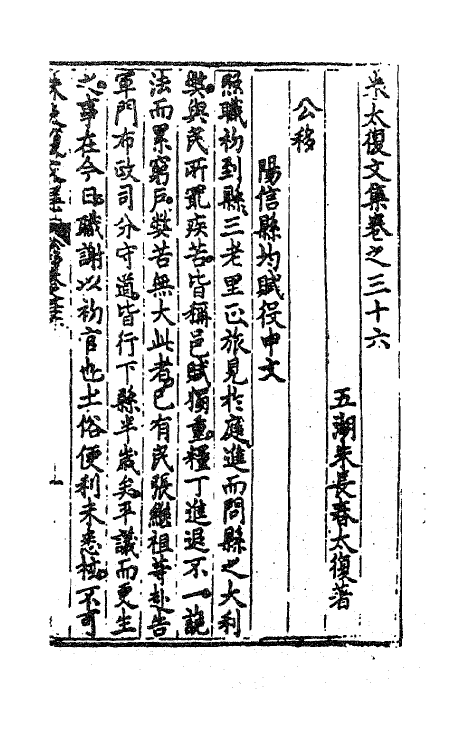 朱太復文集卷之三十六
五湖朱長春太復著
公移
陽信縣均賦役申文
照職初到縣三老里正旅見於庭進而問縣之大利
獘與民所罷疾苦皆稱邑賦獨重糧丁進退不一詭
法而累窮戶獘苦無大此者已有民張繼祖等赴告
軍門布政司分守道皆行下縣半歲矣平議而更生
之事在今日職謝以初官也土俗便利未悉核不可